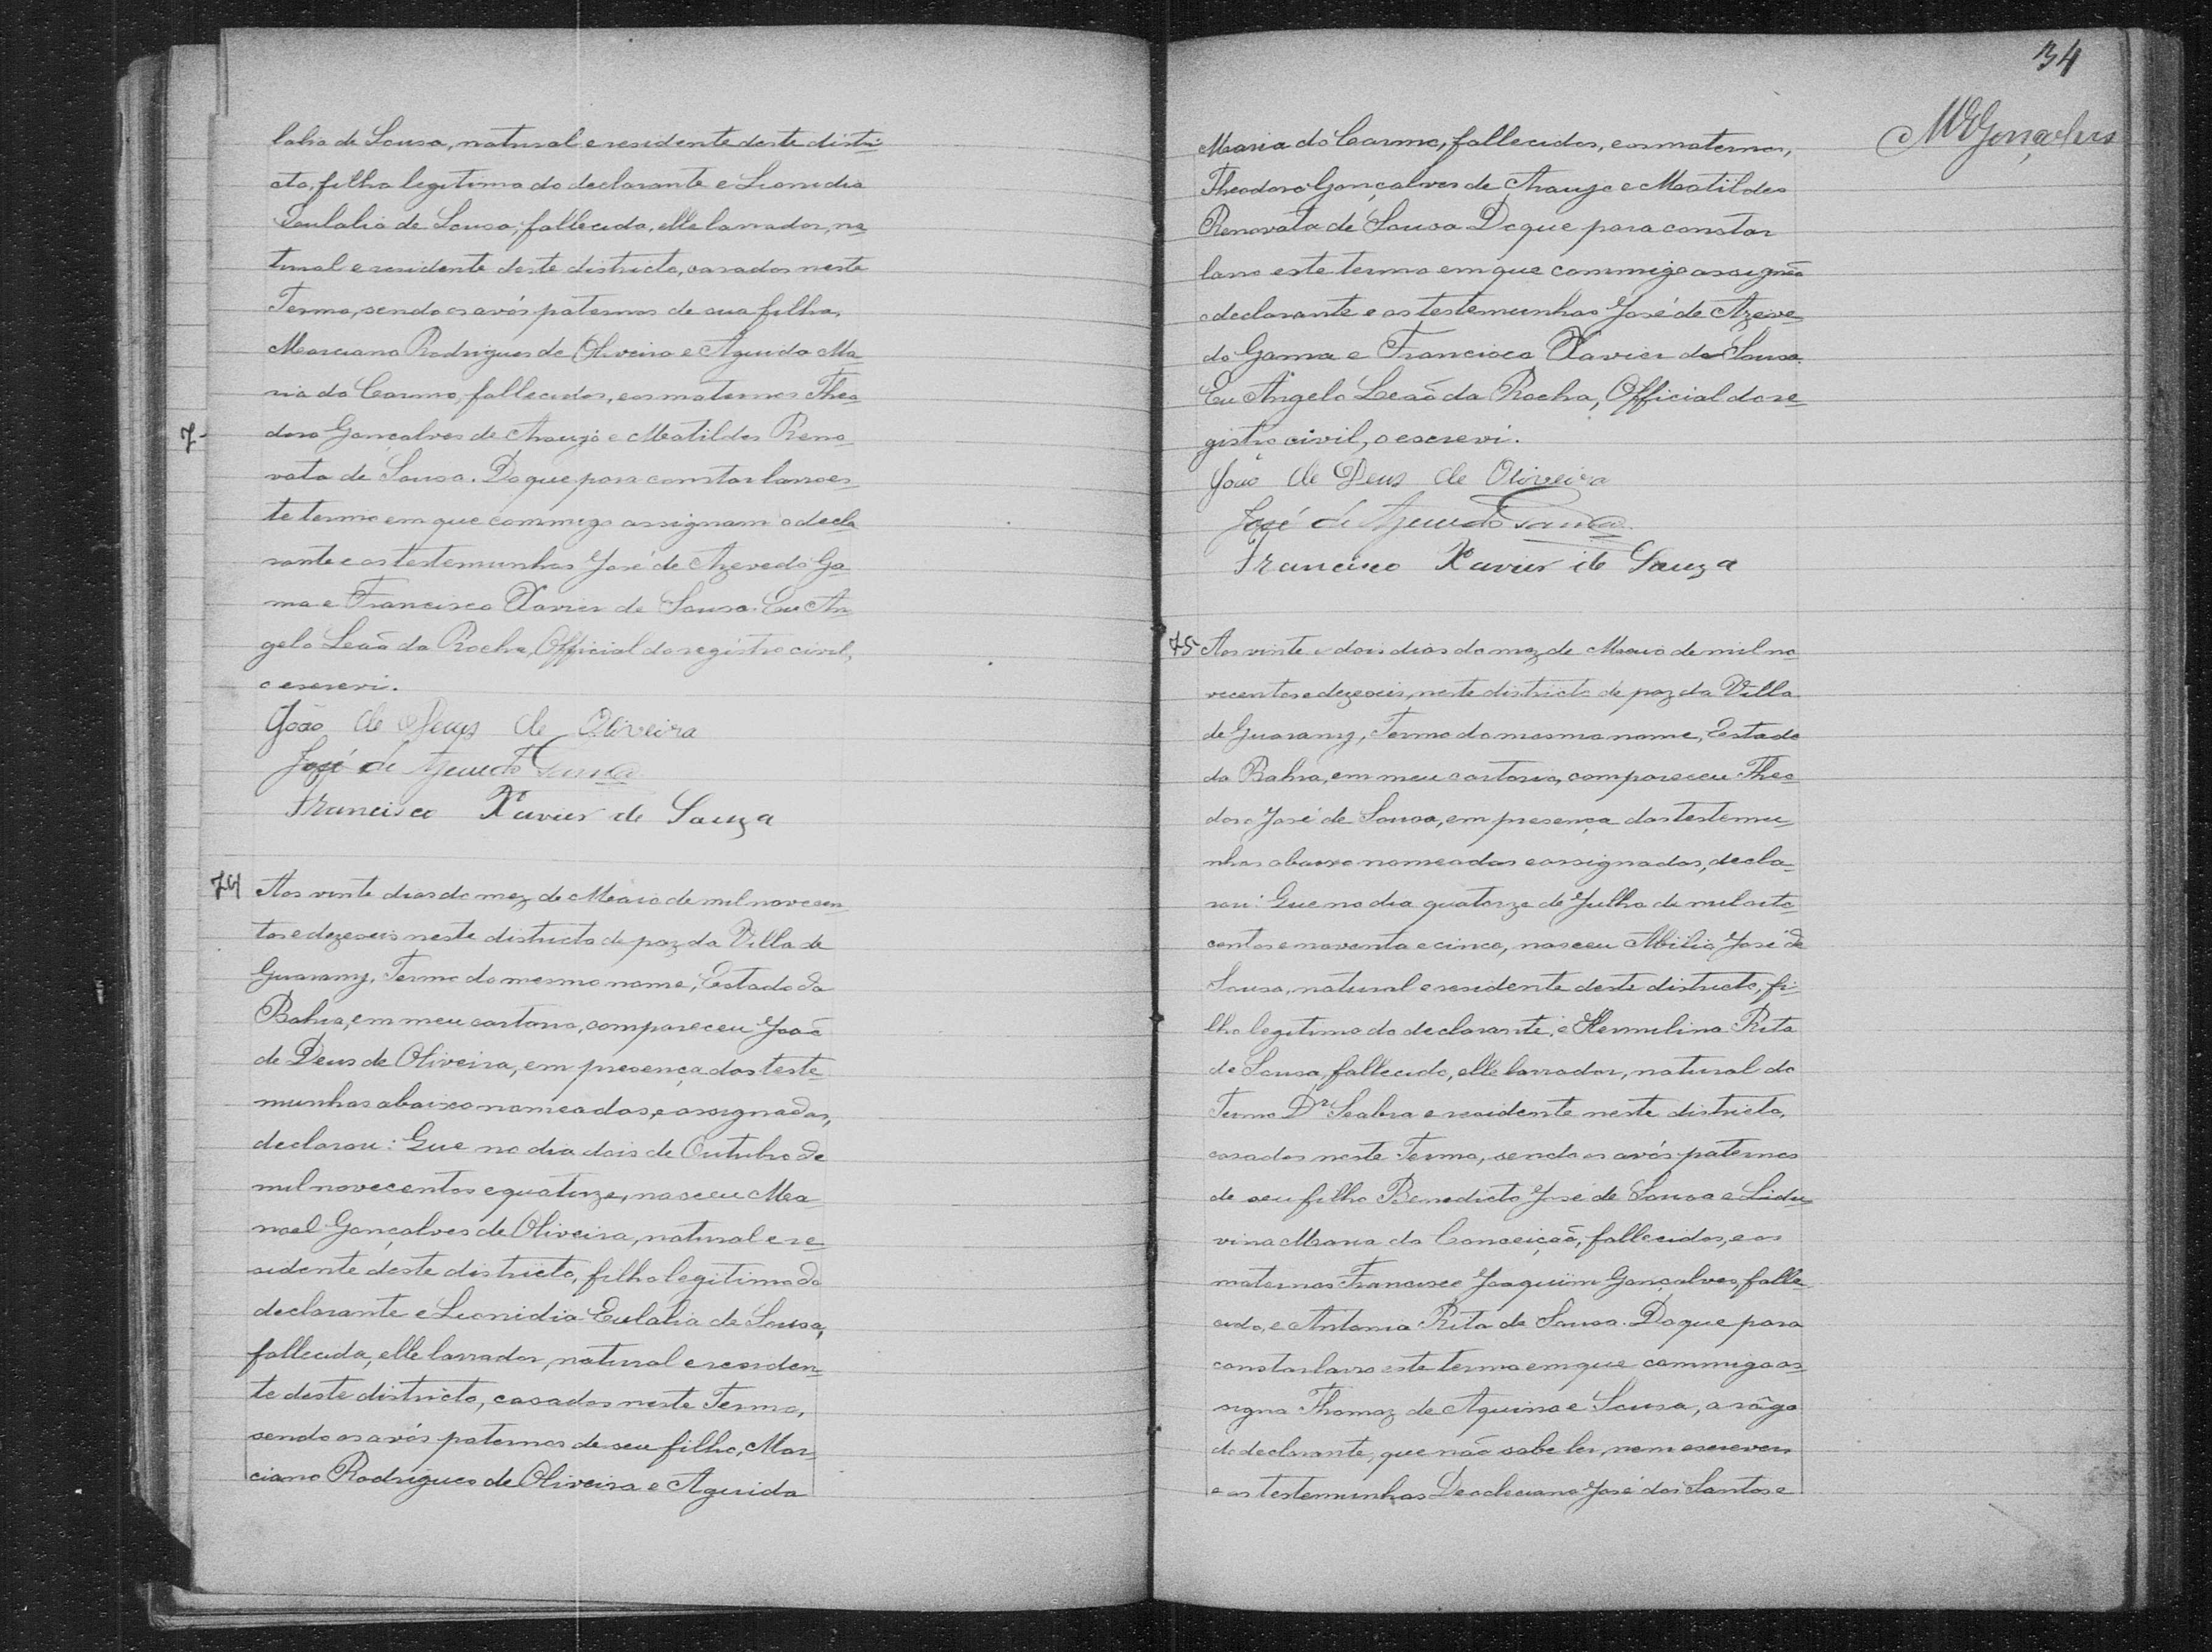 lalia de Sousa, natural e residente deste distri-
cto, filha legitima do declarante e Leonidia
Eulalia de Sousa, fallecida, elle lavrador, na-
tural e residente deste districto, casados neste
Termo, sendo os avós paternos de sua filha,
Marciano Rodrigues de Oliveira e Aguida Ma-
ria do Carmo, fallecidos, e os maternos Theo-
7-
doro Gonçalves de Araujo e Matildes Reno-
vata de Sousa. Do que para constar lavro es-
te termo em que commigo assignam o decla-
rante e as testemunhas José de Azevedo Ga-
ma e Francisco Xavier de Sousa. Eu An-
gelo Leão da Rocha, Official do registro civil,
o escrevi.
João de Deus de Oliveira
José de Azevedo Gama
Francisco Xavier de Souza
74 Aos vinte dias do mez de Maio de mil novecen-
tos e dezeseis neste districto de paz da Villa de
Guarany, Termo do mesmo nome, Estado da
Bahia, em meu cartorio, compareceu João
de Deus de Oliveira, em presença das teste-
munhas abaixo nomeadas, e assignadas,
declarou: Que no dia dois de Outubro de
mil novecentos e quatorze, nasceu Ma-
noel Gonçalves de Oliveira, natural e re-
sidente deste districto, filho legitimo do
declarante e Leonidia Eulalia de Sousa,
fallecida, elle lavrador, natural e residen-
te deste districto, casados neste Termo,
sendo os avós paternos de seu filho, Mar-
ciano Rodrigues de Oliveira e Aguida
34
MEGonçalves
Maria do Carmo, fallecidos, e os maternos,
Theodoro Gonçalves de Araujo e Matildes
Renovata de Sousa Do que para constar
lavro este termo em que commigo assignão
o declarante e as testemunhas José de Azeve-
do Gama e Francisco Xavier de Sousa.
Eu Angelo Leão da Rocha, Official do re-
gistro civil, o escrevi.
João de Deus de Oliveira
José de Azevedo Gama
Francisco Xavier de Souza
75 Aos vinte e dois dias do mez de Maio de mil no-
vecentos e dezeseis, neste districto de paz da Villa
de Guarany, Termo do mesmo nome, Estado
da Bahia, em meu cartorio, compareceu Theo-
doro José de Sousa, em presença das testemu-
nhas abaixo nomeadas e assignadas, decla-
rou: Que no dia quatorze de Julho de mil oito-
centos e noventa e cinco, nasceu Abilio José de
Sousa, natural e residente deste districto, fi-
lho legitimo do declarante, e Hermelina Rita
de Sousa, fallecida, elle lavrador, natural do
Termo Dr Seabra e residente neste districto,
casados neste Termo, sendo os avós paternos
de seu filho Benedicto José de Sousa e Lidu-
vina Maria da Conceição, fallecidos, e os
maternos Francisco Joaquim Gonçalves, falle-
cido, e Antonia Rita de Sousa. Do que para
constar lavro este termo em que commigo as-
signa Thomaz de Aquino e Sousa, a rôgo
do declarante, que não sabe ler, nem escrever
e as testemunhas Deocleciano José dos Santos e